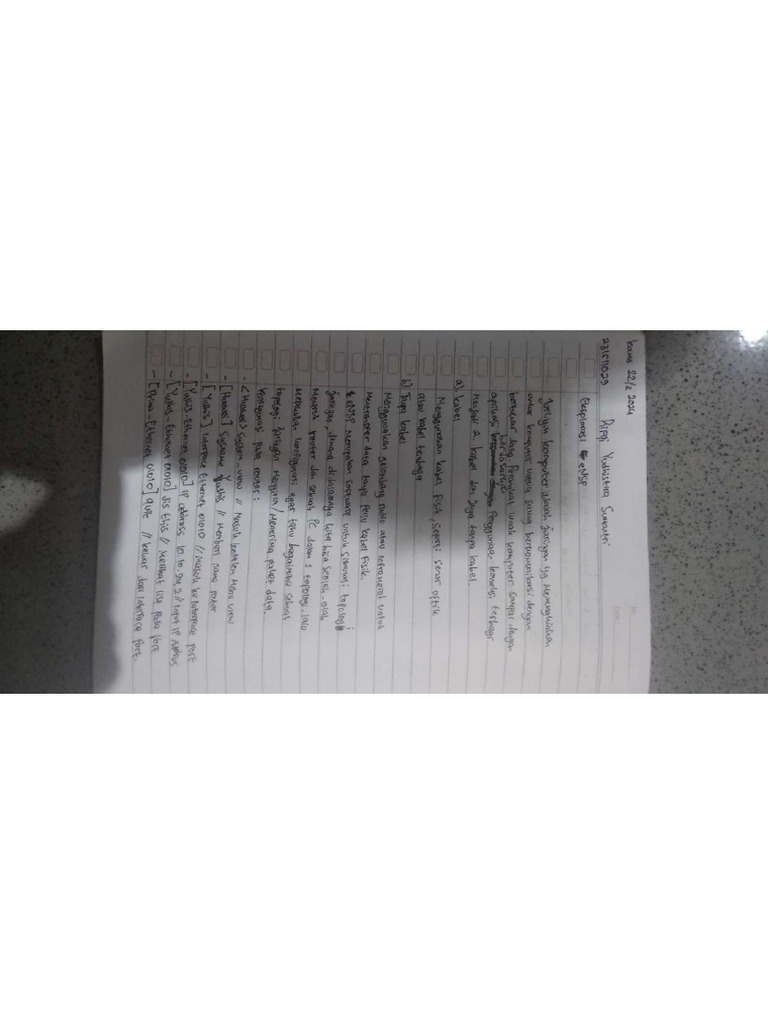 Kamis 22/2 2024
231511029 Yudhistira
Eksplorasi eNSP
Jaringan komputer adalah jaringan yg memungkinkan
antar komputer untuk saling berkomunikasi dengan
bertukar data. Perangkat lunak komputer sampai dengan
aplikasi Penggunaan koneksi terbagi
berdasarkan
menjadi 2, kabel dan Juga tanpa kabel.
a). kabel
Menggunakan kabel fisik, seperti serat optik
atau kabel tembaga
b) Tanpa kabel
Menggunakan gelombang radio atau infrared untuk
mentransfer data tanpa perlu kabel fisik.
eNSP merupakan software untuk simulasi topologi
jaringan, dimana didalamnya kita bisa seolah-olah
Router dan sebuah PC dalam 1 topologi, lalu
melakukan konfigurasi agar tahu bagaimana sebuah
topologi jaringan mengirim/menerima paket data
konfigurasi pada router:
- <Huawei> System-view // Masuk kedalam Menu view
- [Huawei] Sysname Yudhis // Memberi nama router
- [Yudhis] Interface Ethernet 0/0/0 // masuk ke Interface port
- [Yudhis-Ethernet 0/0/0] IP address 10.10.24.2 // Input IP Address
- [Yudhis-Ethernet 0/0/0] dis this // melihat isi pada port
- Ethernet 0/0/0] quit // keluar dari Interface port.